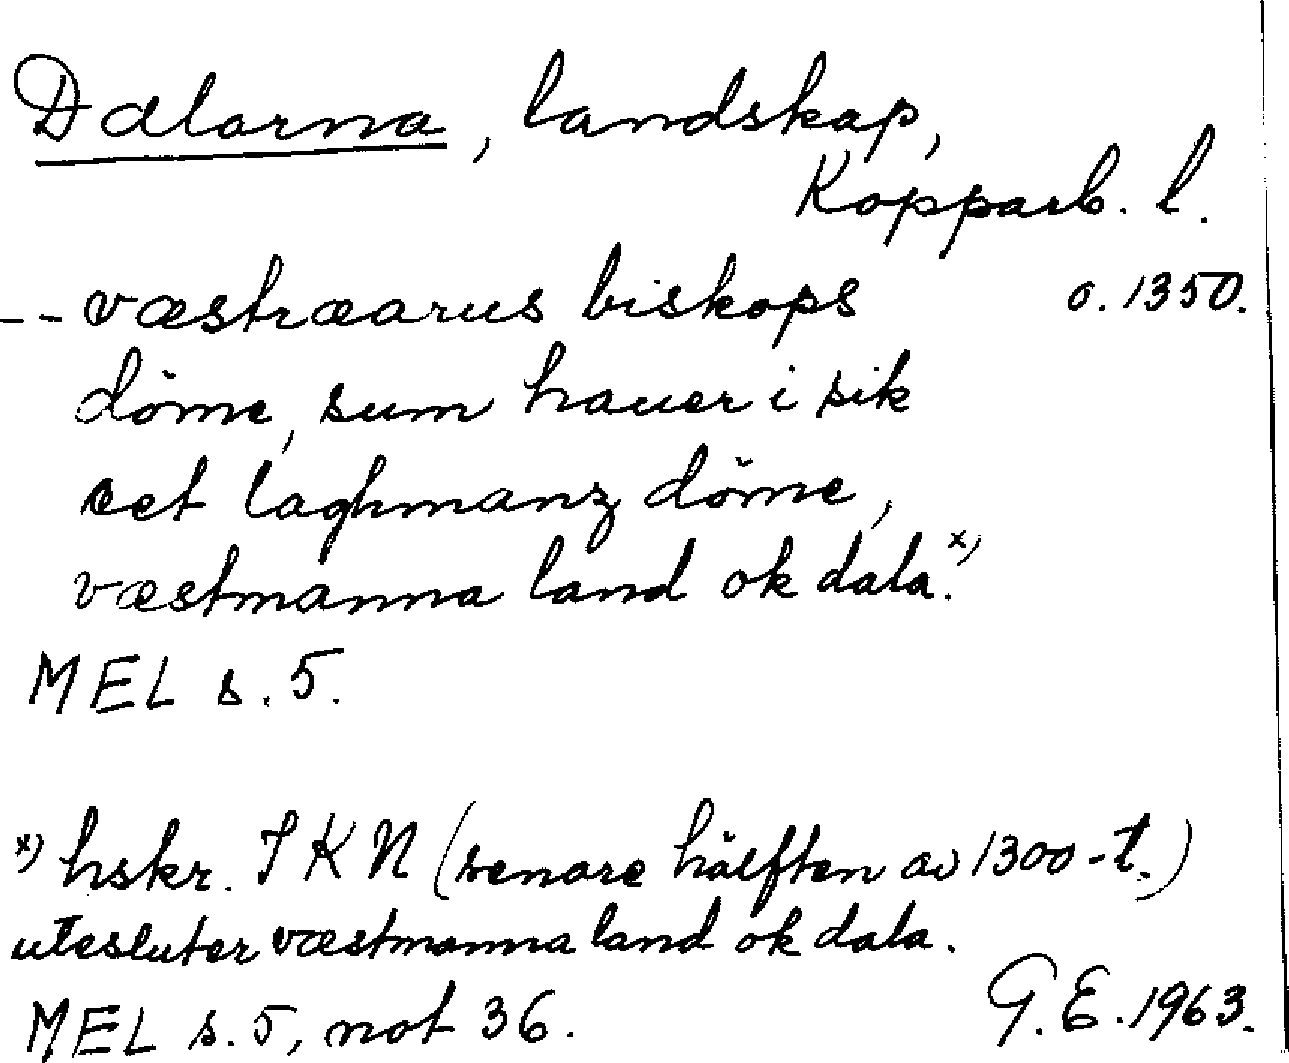 Dalarna, landskap,
Kopparb. l.
-- væstræarus biskops o. 1350.
döme, sum hauer i sik
eet laghmanz döme,
væstmanna land ok dala.x)
MEL s. 5.
x) hskr. I K N (senare hälften av 1300-t.)
utesluter væstmanna land ok dala.
MEL s. 5, not 36. G. E. 1963.